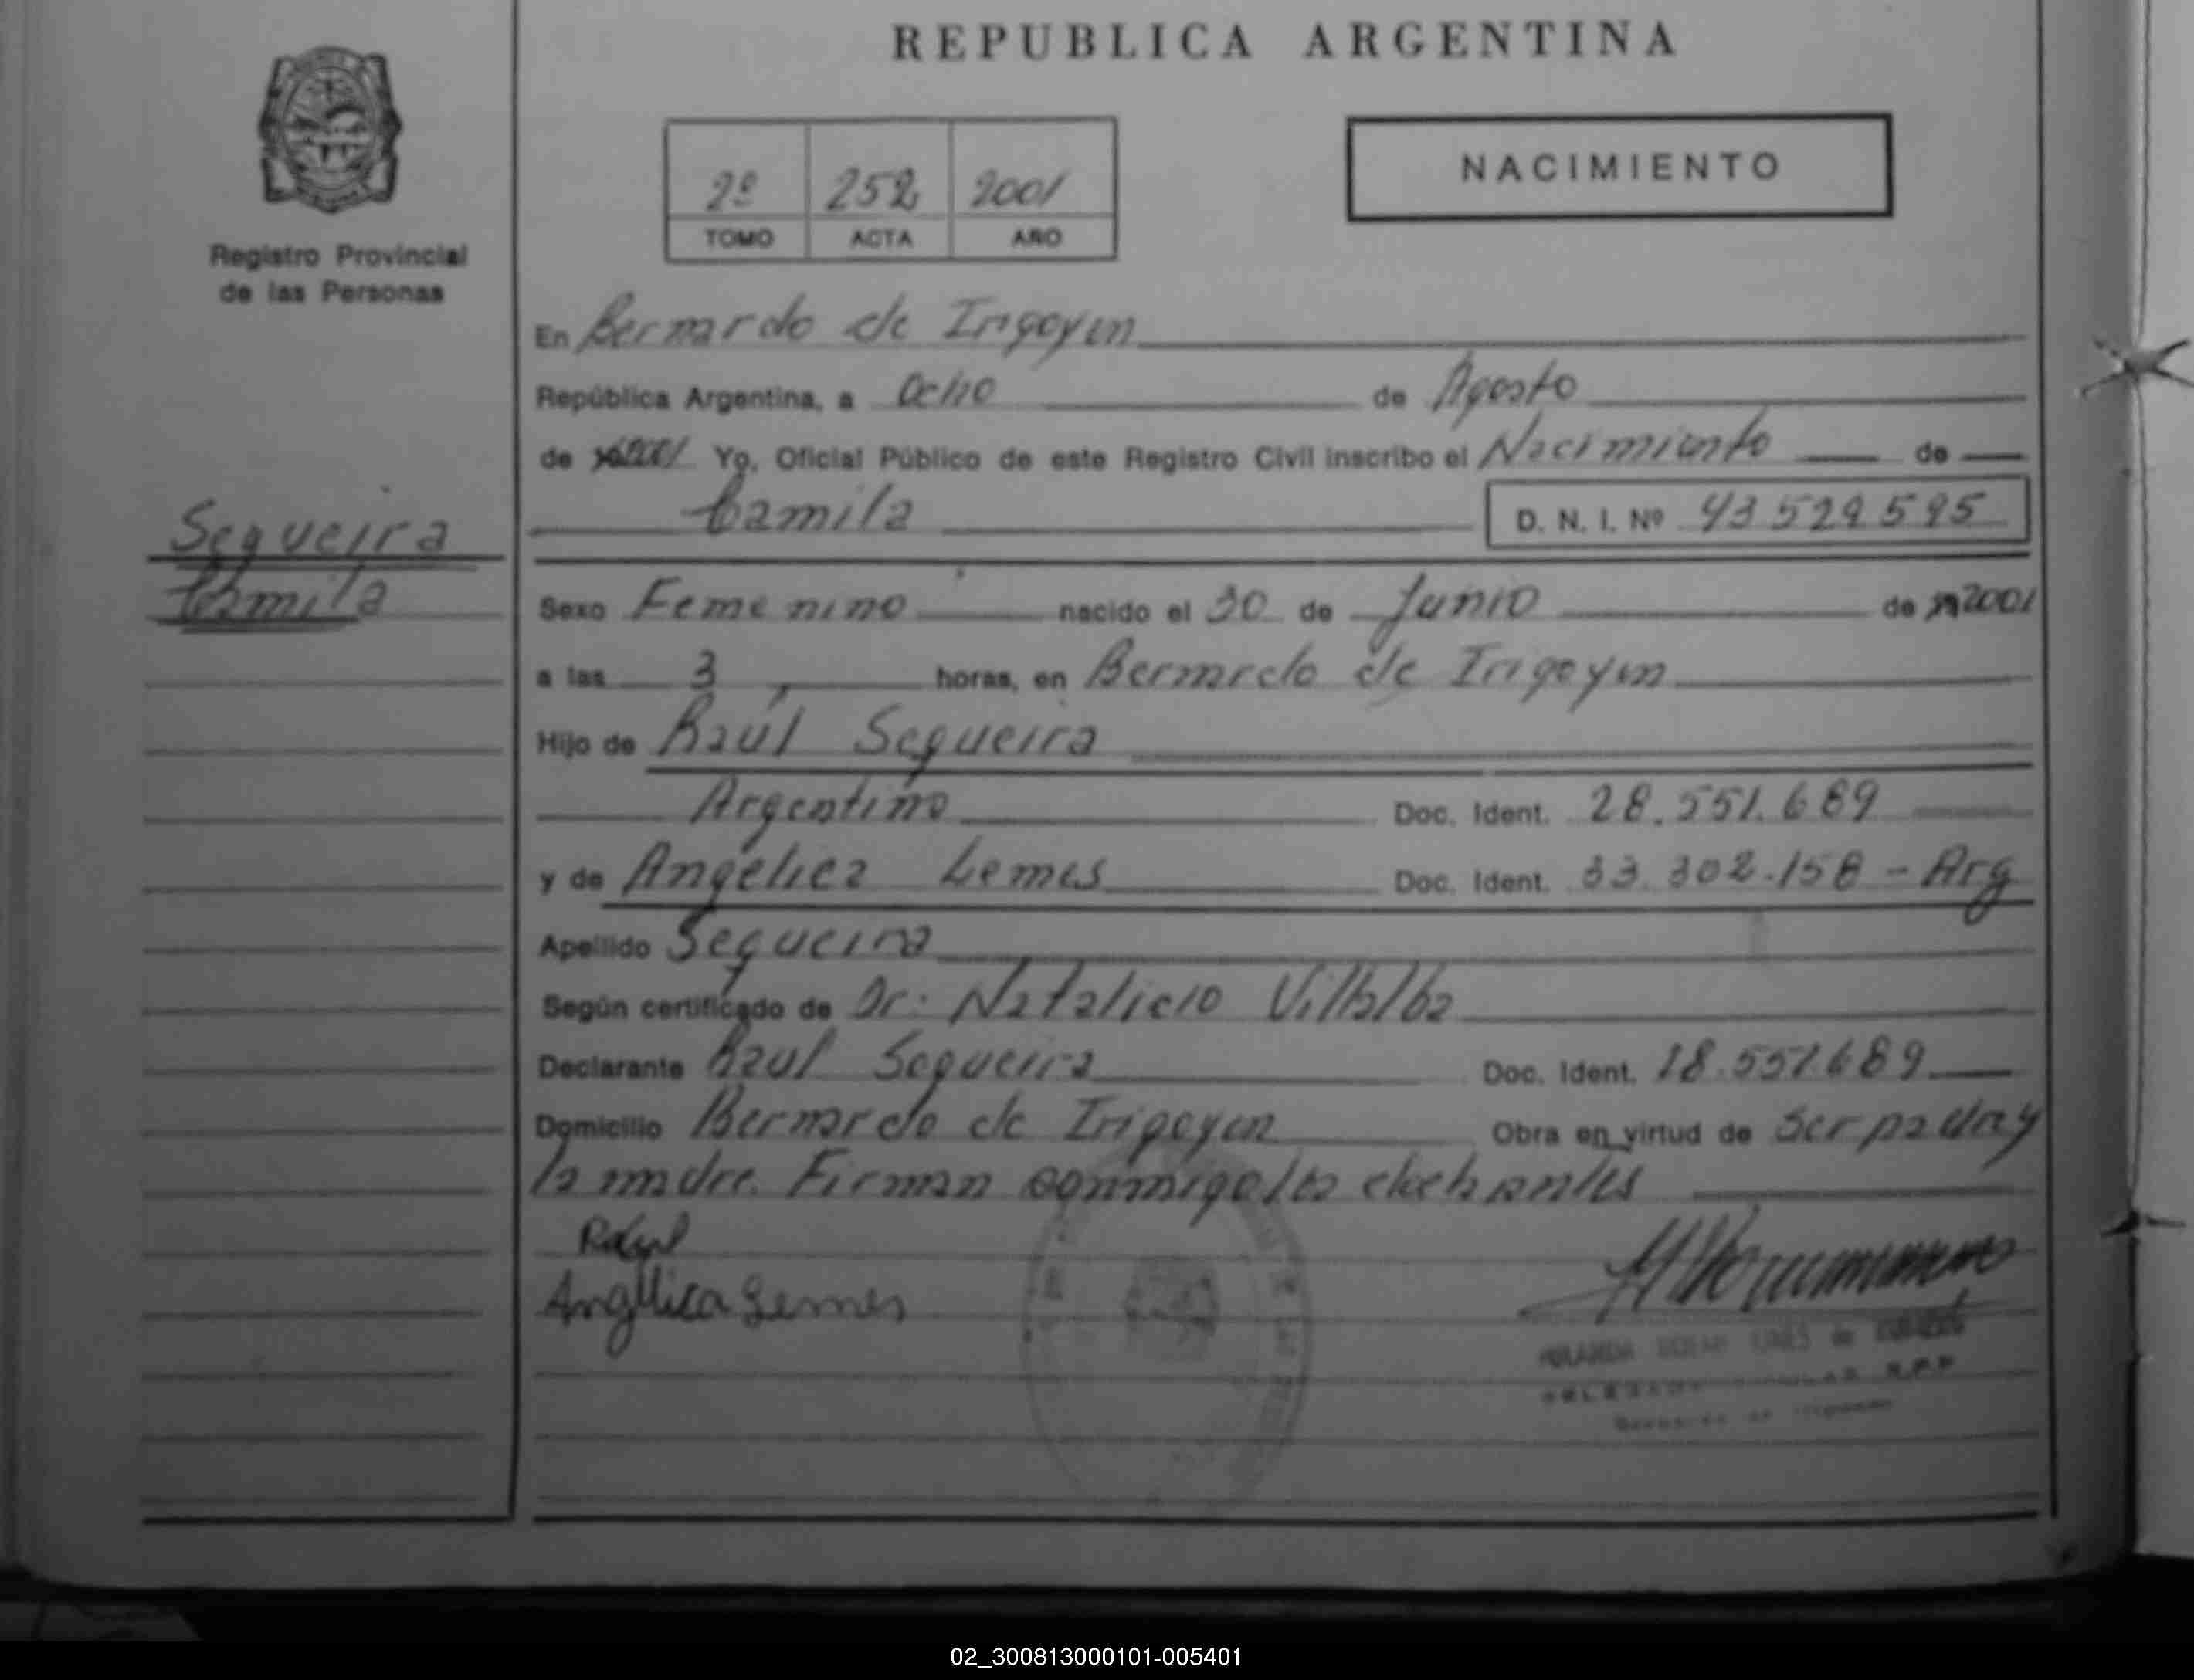 REPUBLICA ARGENTINA
Registro Provincial
de las Personas
2º 252 2001
TOMO ACTA AÑO
NACIMIENTO
En Bernardo de Irigoyen
República Argentina, a Ocho de Agosto
de 2001 Yo, Oficial Público de este Registro Civil inscribo el Nacimiento de
Camila D. N. I. Nº 43 529 595
Sequeira
Camila
Sexo Femenino nacido el 30 de Junio de 2001
a las 3 horas, en Bernardo de Irigoyen
Hijo de Raúl Sequeira
Argentino Doc. Ident. 28.551.689
y de Angélica Lemes Doc. Ident. 33.302.158 - Arg
Apellido Sequeira
Según certificado de Dr: Natalicio Villalba
Declarante Raul Sequeira Doc. Ident. 18.551.689
Domicilio Bernardo de Irigoyen Obra en virtud de Ser padre y
la madre. Firman conmigo
Raul
Angelica Lemes
02_300813000101-005401